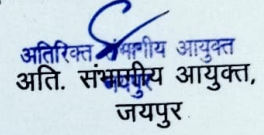 अतिरिक्त संभागीय आयुक्त
अति. संभागीय आयुक्त,
जयपुर